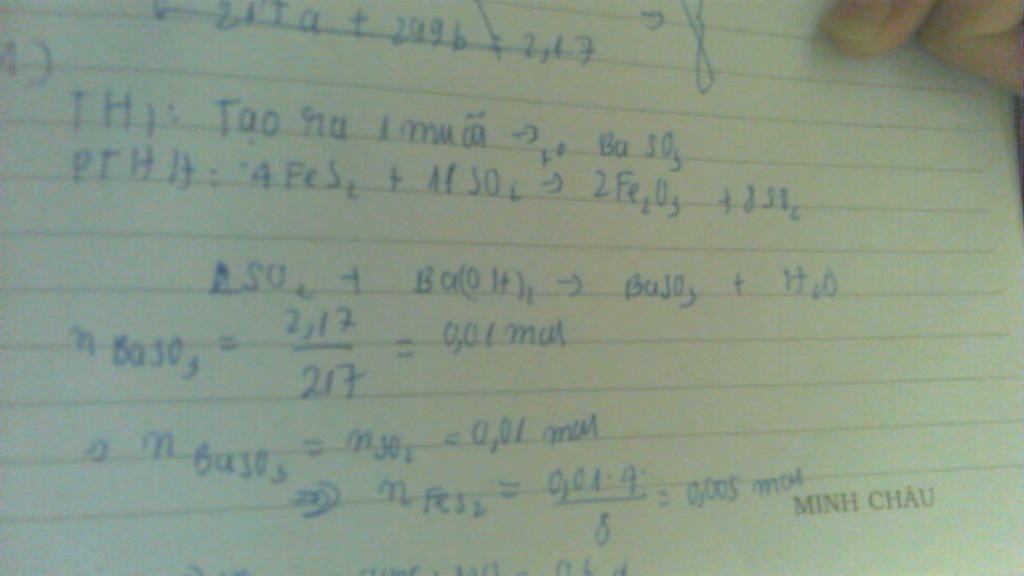 217a + 299b = 2,17 ⇒
1.)
TH1: Tạo ra 1 muối → BaSO3
PTHH: 4FeS2 + 11SO2 → 2Fe2O3 + 8SO2
SO2 + Ba(OH)2 → BaSO3 + H2O
nBaSO3 = 2,17/217 = 0,01 mol
⇒ nBaSO3 = nSO2 = 0,01 mol
⇒ nFeS2 = 0,01.4/8 = 0,005 mol
MINH CHÂU